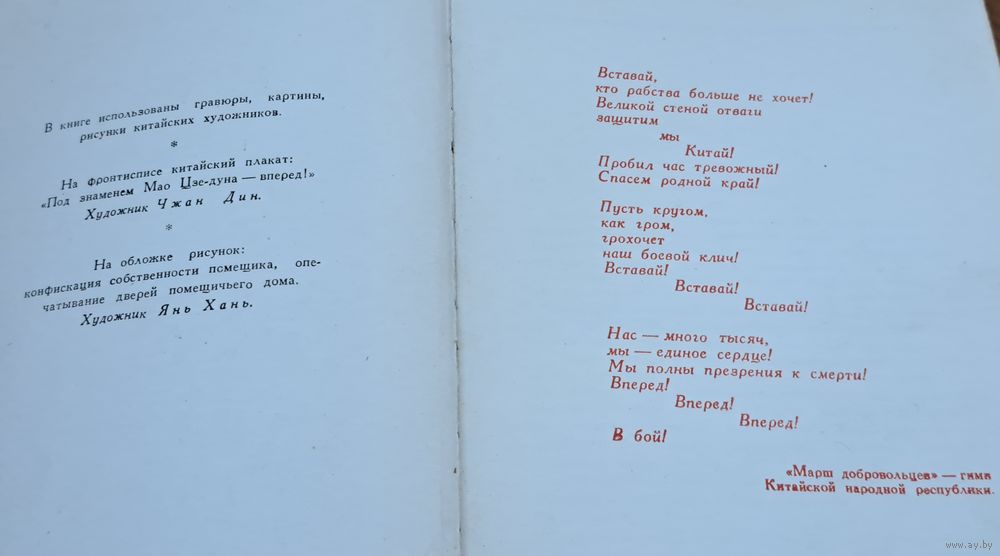 В книге использованы гравюры, картины,
рисунки китайских художников.
*
На фронтисписе китайский плакат:
«Под знаменем Мао Цзе-дуна — вперед!»
Художник Чжан Дин.
*
На обложке рисунок:
конфискация собственности помещика, опе-
чатывание дверей помещичьего дома.
Художник Янь Хань.
Вставай,
кто рабства больше не хочет!
Великой стеной отваги
защитим
мы
Китай!
Пробил час тревожный!
Спасем родной край!
Пусть кругом,
как гром,
грохочет
наш боевой клич!
Вставай!
Вставай!
Вставай!
Нас — много тысяч,
мы — единое сердце!
Мы полны презрения к смерти!
Вперед!
Вперед!
Вперед!
В бой!
«Марш добровольцев» — гимн
Китайской народной республики.
www.ay.by